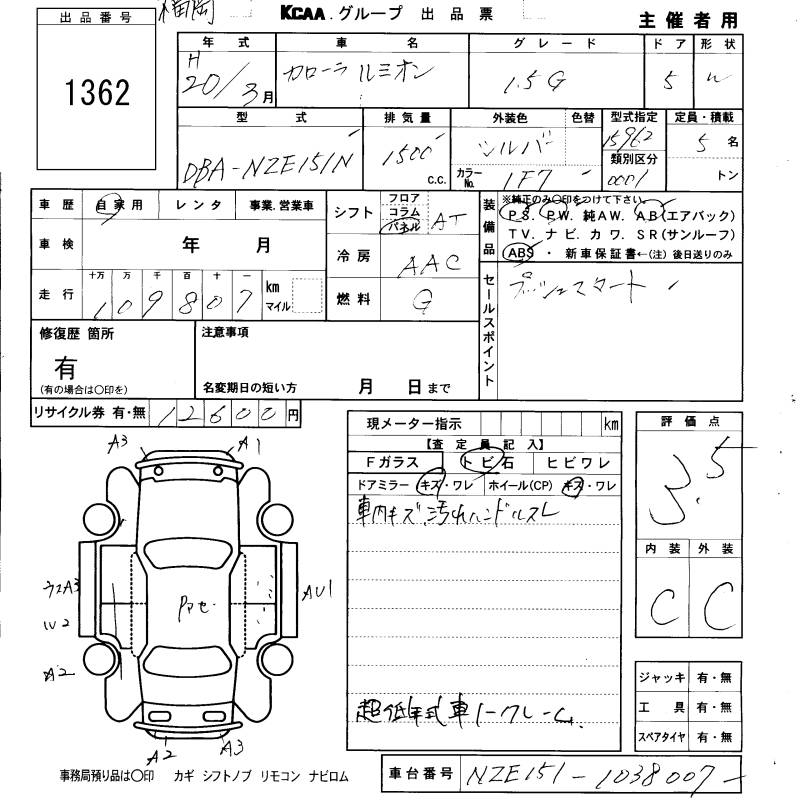 横岡
KCAA.グループ 出品票
主催者用
出品番号
1362
年式 車名 グレード ドア 形状
H20/3月 カローラ ルミオン 1.5G 5 W
型式 排気量 外装色 色替 型式指定 定員・積載
DBA-NZE151N 1500 c.c. シルバー 15962 5名
カラーNo. 1F7 類別区分 0001 トン
車歴 自家用 レンタ 事業.営業車
シフト フロア コラム パネル AT
装備品 ※純正のみ〇印をつけて下さい。
PS. PW. 純AW. AB(エアバック)
TV. ナビ. カワ. SR(サンルーフ)
ABS ・ 新車保証書←(注) 後日送りのみ
車検 年 月
冷房 AAC
走行 十万 万 千 百 十 一
109807 km マイル
燃料 G
セールスポイント プッシュスタート
修復歴 箇所
有
(有の場合は〇印を)
注意事項
名変期日の短い方 月 日まで
リサイクル券 有・無 12600円
現メーター指示 km
【査定員記入】
Fガラス トビ石 ヒビワレ
ドアミラー キズ・ワレ ホイール(CP) キズ・ワレ
車内キズ汚れハンドルスレ
超低年式車ノークレーム
評価点
3.5
内装 外装
C C
A3 A1
ウエA3
AU1
A2
A2 A3
ジャッキ 有・無
工具 有・無
スペアタイヤ 有・無
事務局預り品は〇印 カギ シフトノブ リモコン ナビロム
車台番号 NZE151-1038007